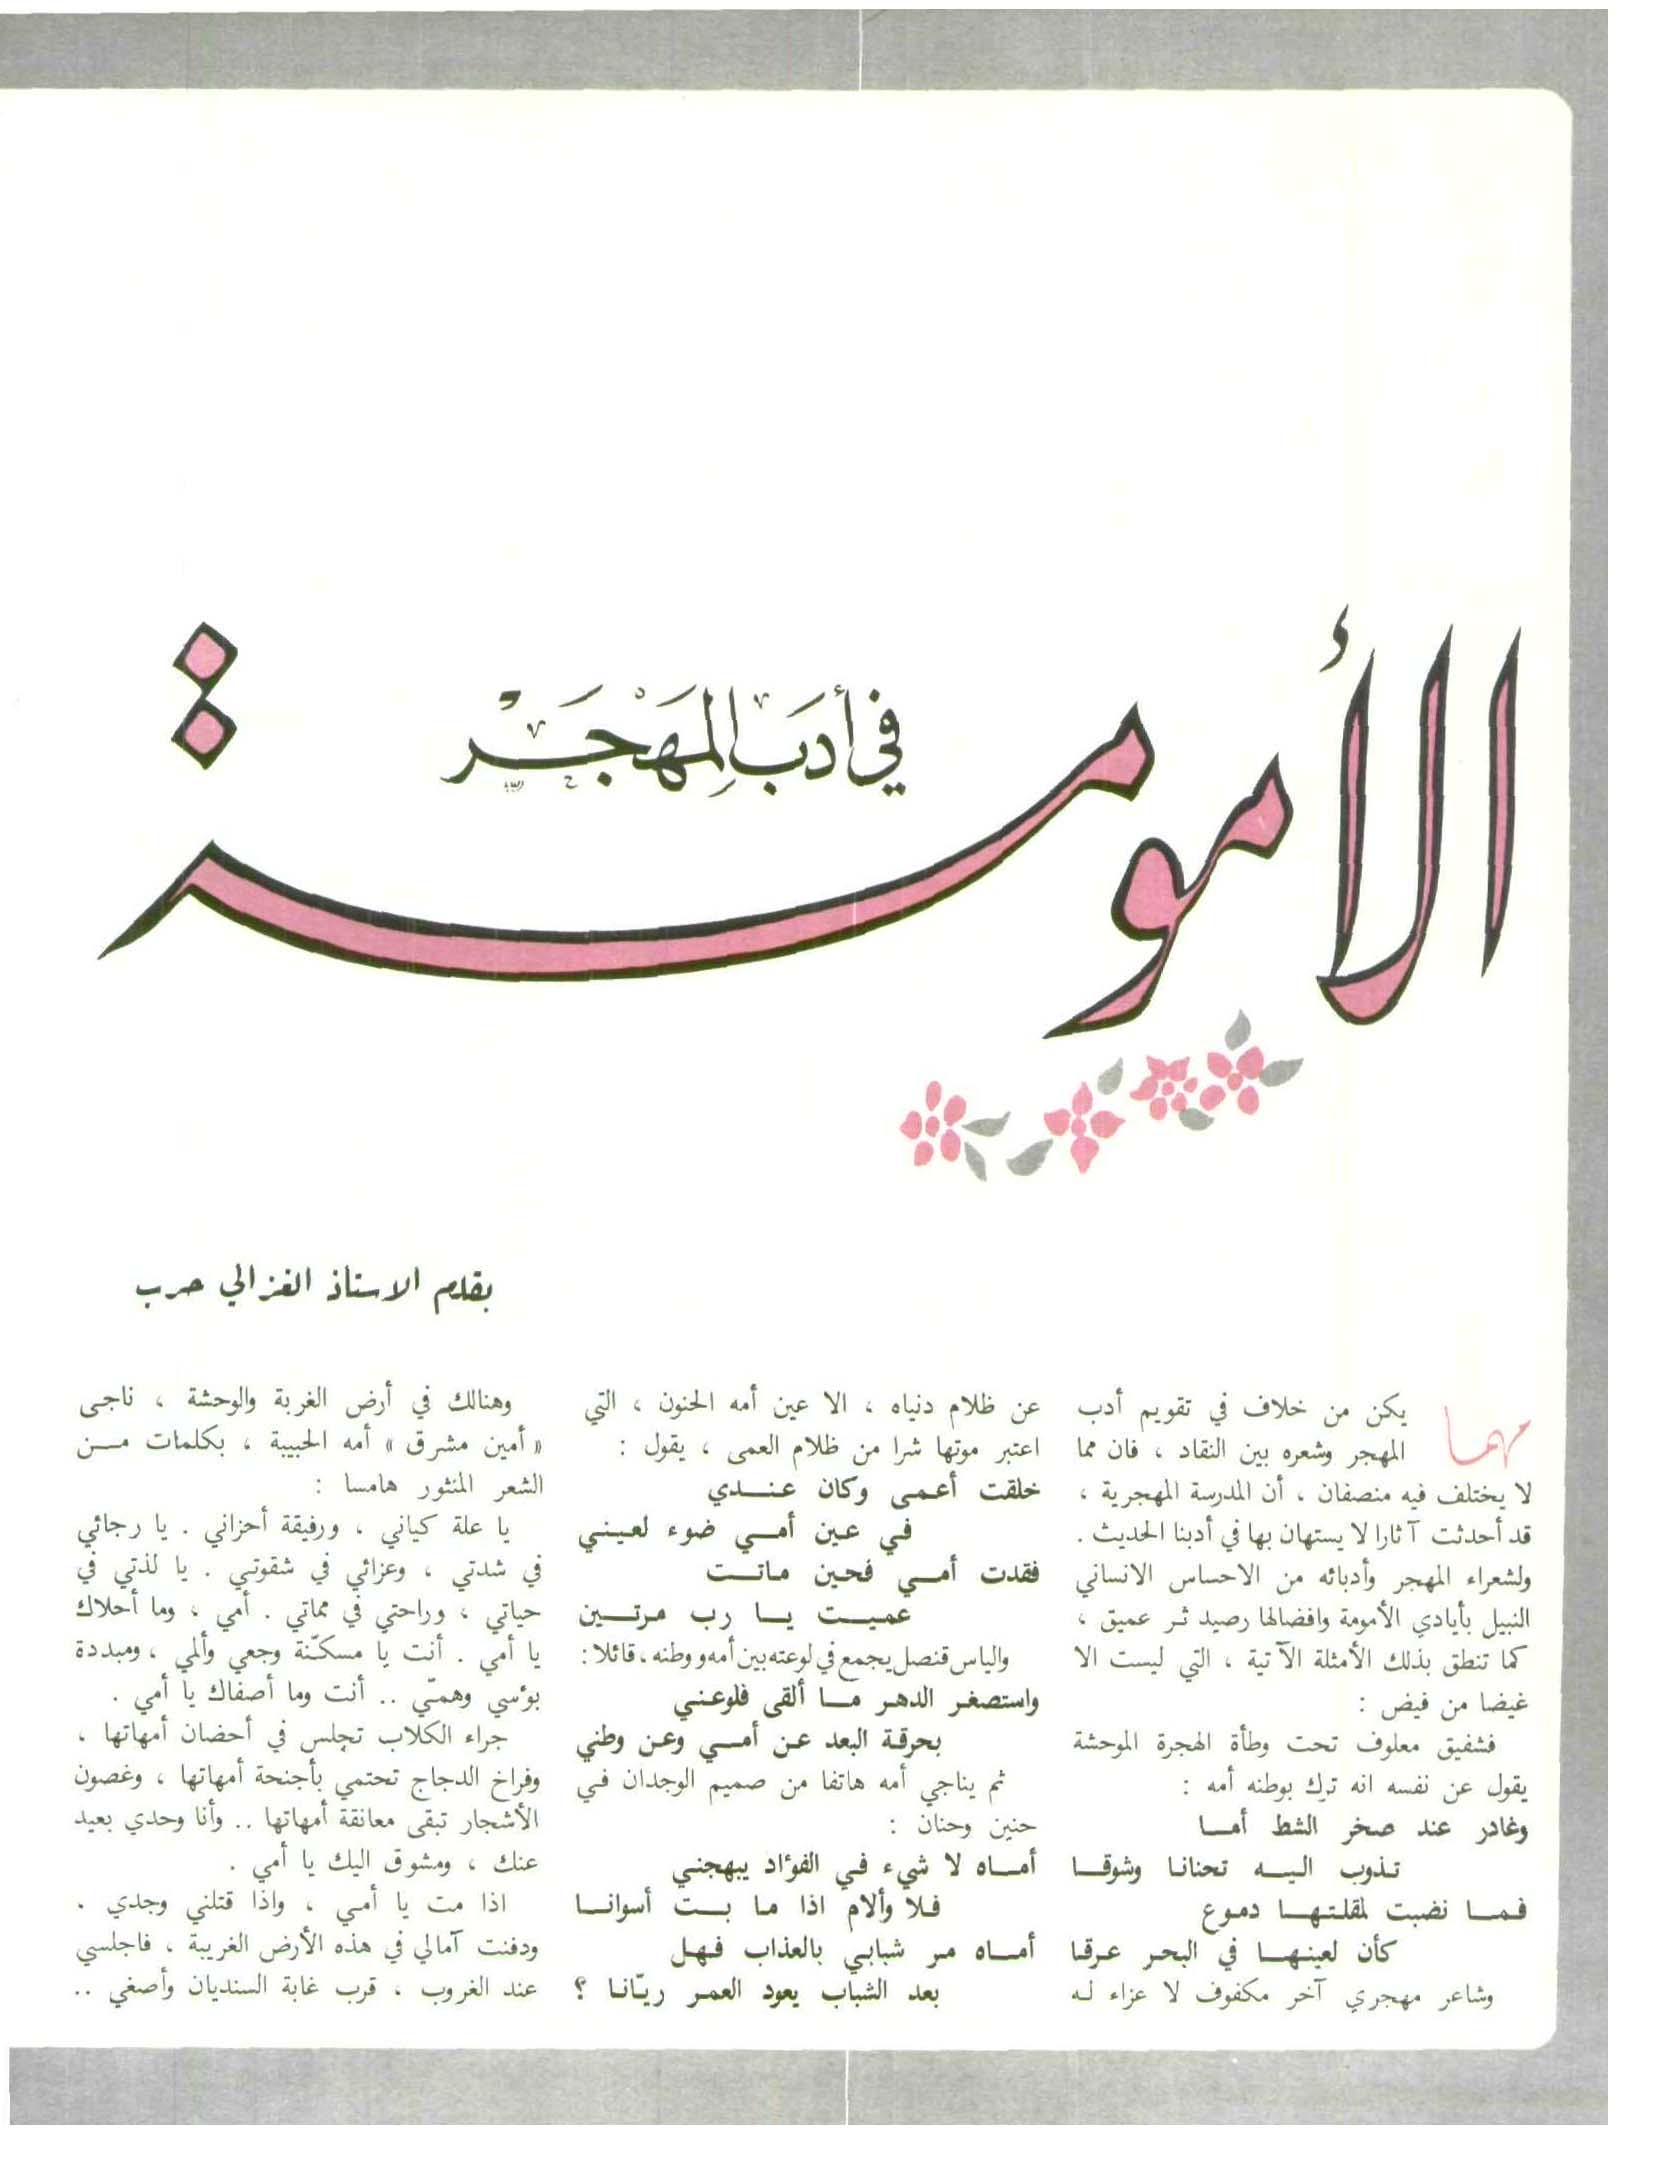 الأمومة
في أدب المهجر
بقلم الاستاذ الغزالي حرب
مهما يكن من خلاف في تقويم أدب
المهجر وشعره بين النقاد ، فان مما
لا يختلف فيه منصفان ، أن المدرسة المهجرية ،
قد أحدثت آثارا لا يستهان بها في أدبنا الحديث .
ولشعراء المهجر وأدبائه من الاحساس الانساني
النبيل بأيادي الأمومة وافضالها رصيد ثر عميق ،
كما تنطق بذلك الأمثلة الآتية ، التي ليست الا
غيضا من فيض :
فشفيق معلوف تحت وطأة الهجرة الموحشة
يقول عن نفسه انه ترك بوطنه أمه :
وغادر عند صخر الشط أمــا
تذوب اليــه تحنانا وشوقــا
فمــا نضبت لمقلتهــا دموع
كأن لعينهــا في البحر عرقا
وشاعر مهجري آخر مكفوف لا عزاء له
عن ظلام دنياه ، الا عين أمه الحنون ، التي
اعتبر موتها شرا من ظلام العمى ، يقول :
خلقت أعمى وكان عنــدي
في عين أمــي ضوء لعيني
فقدت أمــي فحين ماتــت
عميــت يــا رب مرتــين
والياس قنصل يجمع في لوعته بين أمه ووطنه ، قائلا :
واستصغر الدهر مــا ألقى فلوعني
بحرقة البعد عن أمــي وعن وطني
ثم يناجي أمه هاتفا من صميم الوجدان في
حنين وحنان :
أمــاه لا شيء في الفؤاد يبهجني
فلا وألام اذا ما بــت أسوانــا
أمــاه مر شبابي بالعذاب فهل
بعد الشباب يعود العمر ريّانا ؟
وهنالك في أرض الغربة والوحشة ، ناجى
« أمين مشرق » أمه الحبيبة ، بكلمات مــن
الشعر المنثور هامسا :
يا علة كياني ، ورفيقة أحزاني . يا رجائي
في شدتي ، وعزائي في شقوتي . يا لذتي في
حياتي ، وراحتي في مماتي . أمي ، وما أحلاك
يا أمي . أنت يا مسكّنة وجعي وألمي ، ومبددة
بؤسي وهمّي .. أنت وما أصفاك يا أمي .
جراء الكلاب تجلس في أحضان أمهاتها ،
وفراخ الدجاج تحتمي بأجنحة أمهاتها ، وغصون
الأشجار تبقى معانقة أمهاتها .. وأنا وحدي بعيد
عنك ، ومشوق اليك يا أمي .
اذا مت يا أمي ، واذا قتلني وجدي .
ودفنت آمالي في هذه الأرض الغريبة ، فاجلسي
عند الغروب ، قرب غابة السنديان وأصغي ..